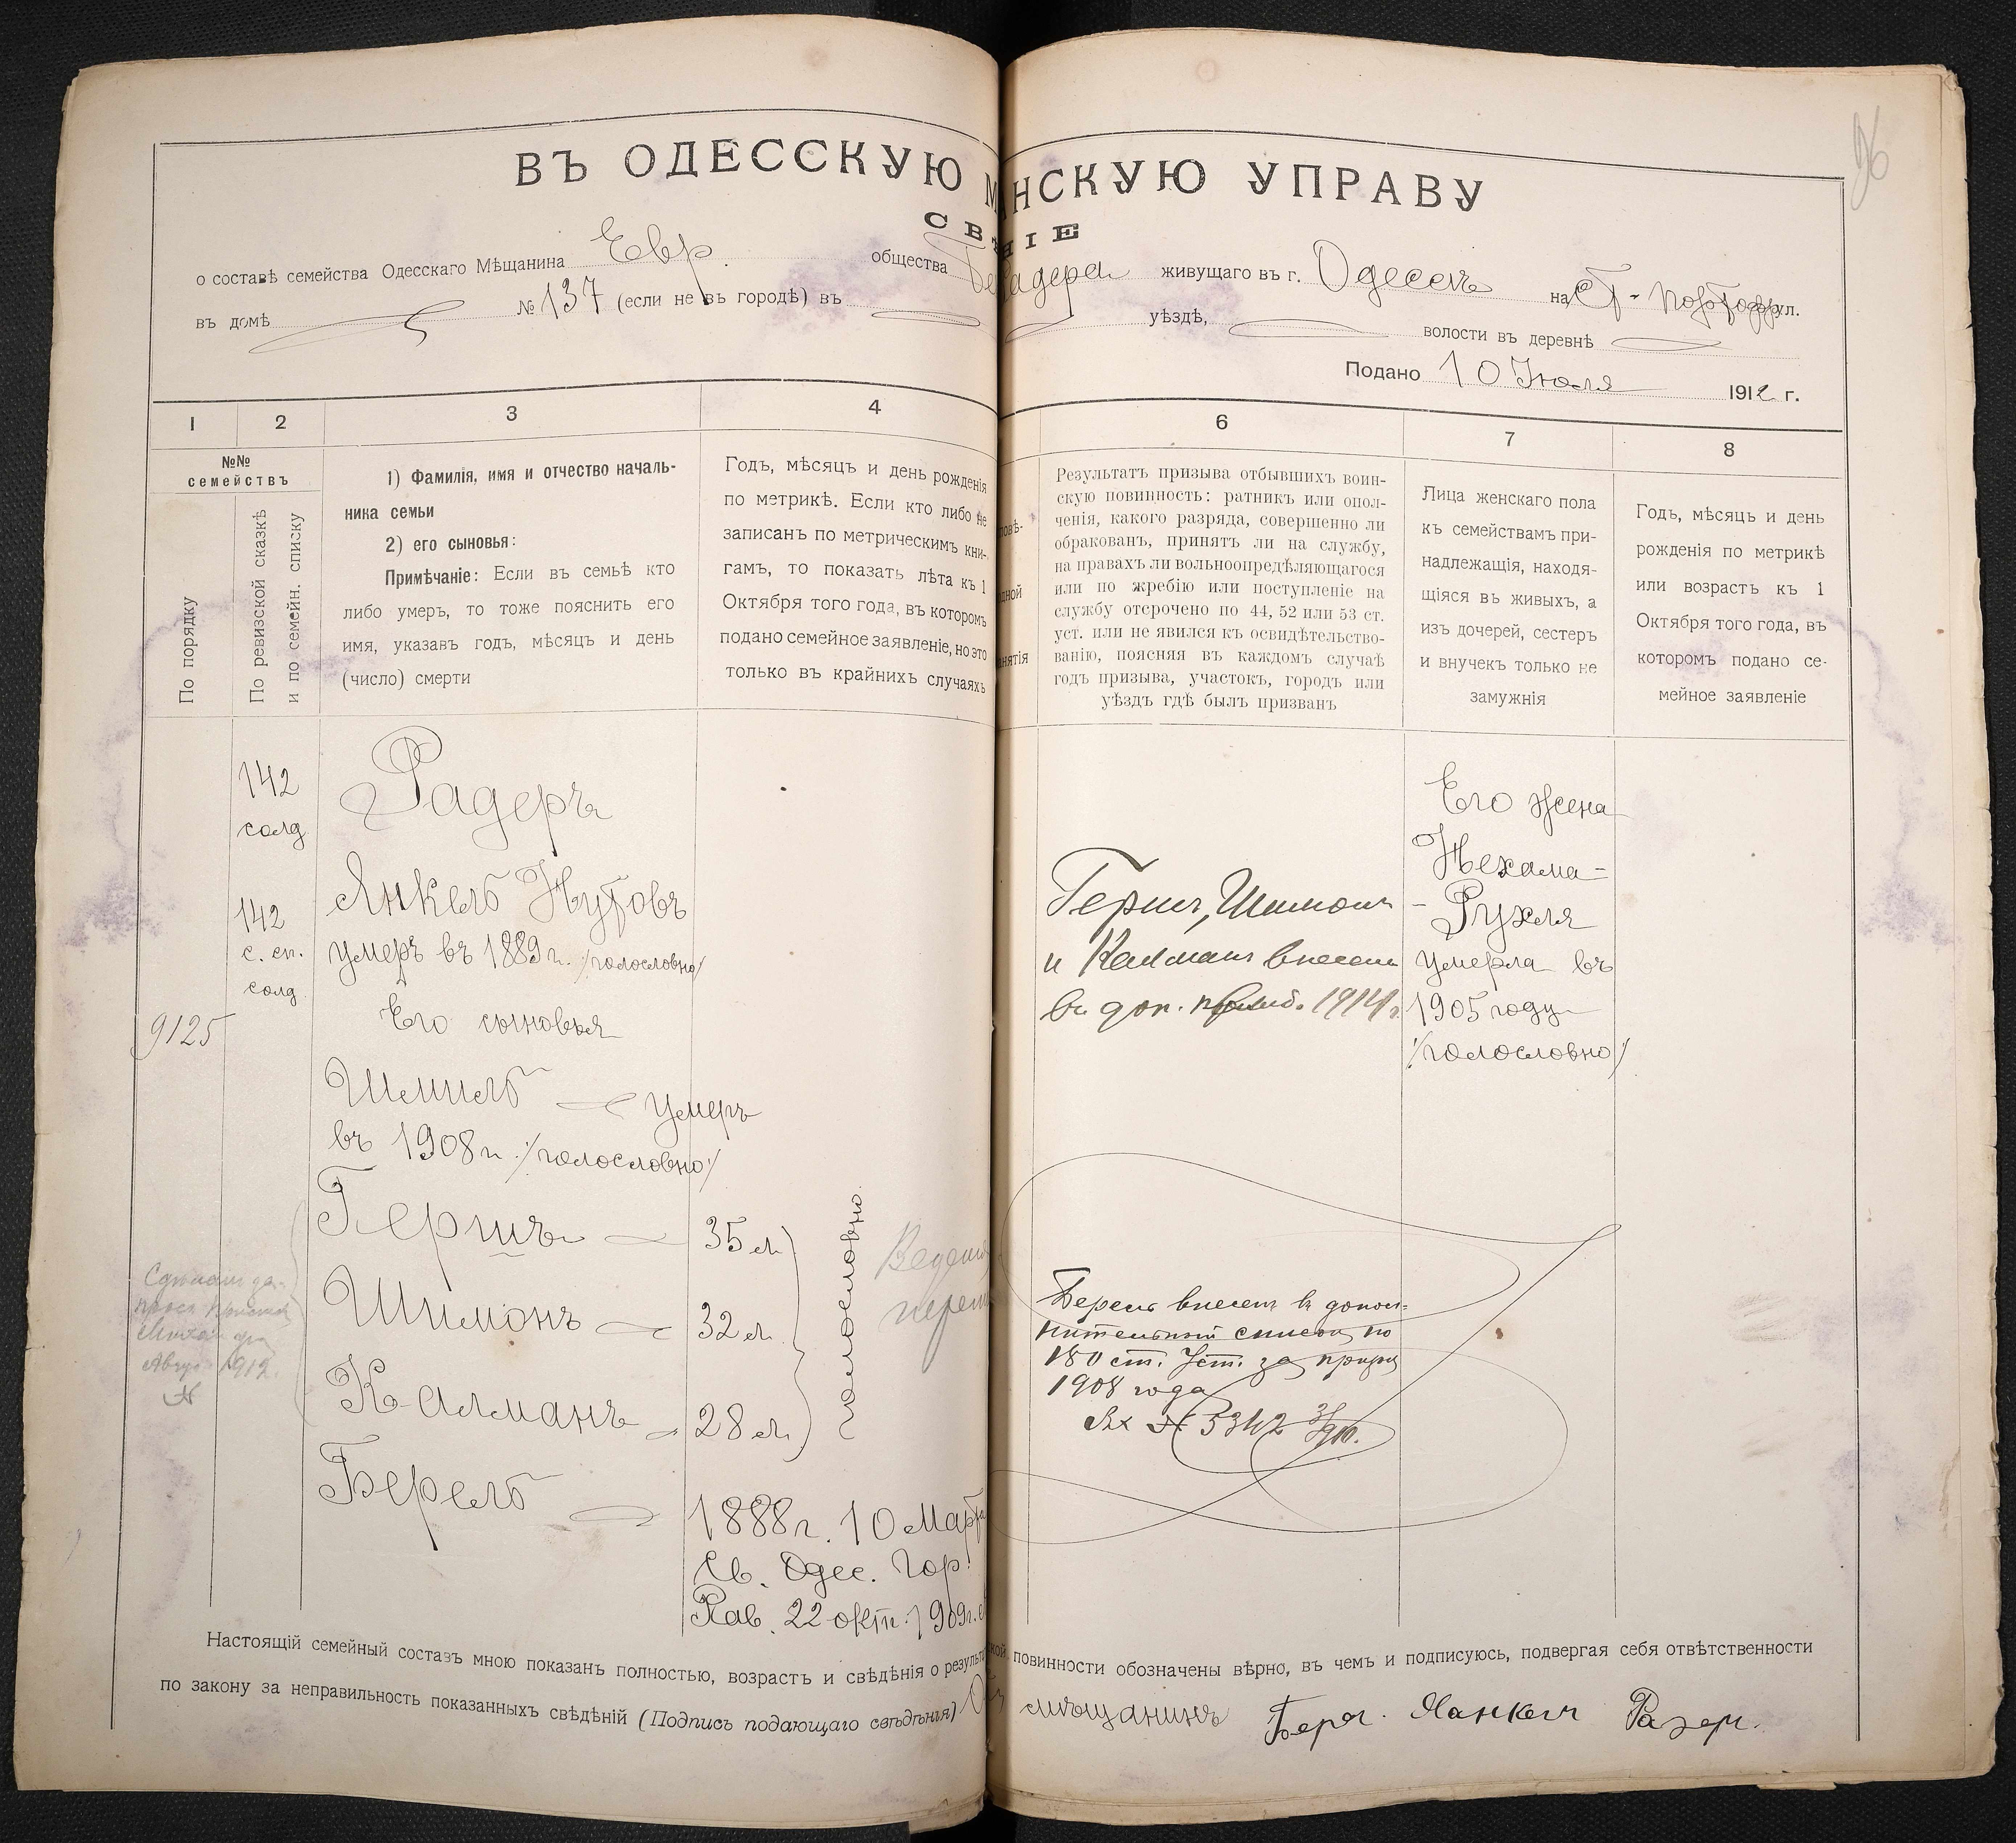 96
ВЪ ОДЕССКУЮ М НСКУЮ УПРАВУ
СВѢ НІЕ
о составѣ семейства Одесскаго Мѣщанина Евр. общества Радера живущаго въ г. Одессѣ на ст-портофр ул.
въ домѣ № 137 (если не въ городѣ) въ уѣздѣ, волости въ деревнѣ
Подано 10 Іюля 1912 г.
1 2 3 4 6 7 8
№№ семействъ
По порядку
По ревизской сказкѣ
и по семейн. списку
1) Фамилія, имя и отчество началь-
ника семьи
2) его сыновья:
Примѣчаніе: Если въ семьѣ кто
либо умеръ, то тоже пояснить его
имя, указавъ годъ, мѣсяцъ и день
(число) смерти
Годъ, мѣсяцъ и день рожденія
по метрикѣ. Если кто либо не
записанъ по метрическимъ кни-
гамъ, то показать лѣта къ 1
Октября того года, въ которомъ
подано семейное заявленіе, но это
только въ крайнихъ случаяхъ
повѣ-
одной
анятія
Результатъ призыва отбывшихъ воин-
скую повинность: ратникъ или опол-
ченія, какого разряда, совершенно ли
обракованъ, принятъ ли на службу,
на правахъ ли вольноопредѣляющагося
или по жребію или поступленіе на
службу отсрочено по 44, 52 или 53 ст.
уст. или не явился къ освидѣтельство-
ванію, поясняя въ каждомъ случаѣ
годъ призыва, участокъ, городъ или
уѣздъ гдѣ былъ призванъ
Лица женскаго пола
къ семействамъ при-
надлежащія, находя-
щіяся въ живыхъ, а
изъ дочерей, сестеръ
и внучекъ только не
замужнія
Годъ, мѣсяцъ и день
рожденія по метрикѣ
или возрастъ къ 1
Октября того года, въ
которомъ подано се-
мейное заявленіе
142
солд
142
с. сп.
солд
9125
Радеръ
Янкель Нутовъ
умеръ въ 1889 г. /голословно/
Его сыновья
Шмиль — умеръ
въ 1908 г. /голословно/
Гершъ — 35 л.
Шимонъ — 32 л.
Калманъ — 28 л.
голословно.
Берель — 1888 г. 10 Марта
Св. Одес. Гор.
Рав. 22 окт. 1909 г.
Авгус 1912.
Гершъ, Шимонъ
и Калманъ внесены
въ доп. 1914 г.
Берель внесенъ въ допол-
нительный списокъ по
180 ст. Уст. за призыв
1908 года
Вх № 5342
Его жена
Нехама-
-Рухля
умерла въ
1905 году
/голословно/
Настоящій семейный составъ мною показанъ полностью, возрастъ и свѣдѣнія о результ кой повинности обозначены вѣрно, въ чемъ и подписуюсь, подвергая себя отвѣтственности
по закону за неправильность показанныхъ свѣдѣній (Подпись подающаго свѣдѣнія) мѣщанинъ Берл. Янкелъ Радер.